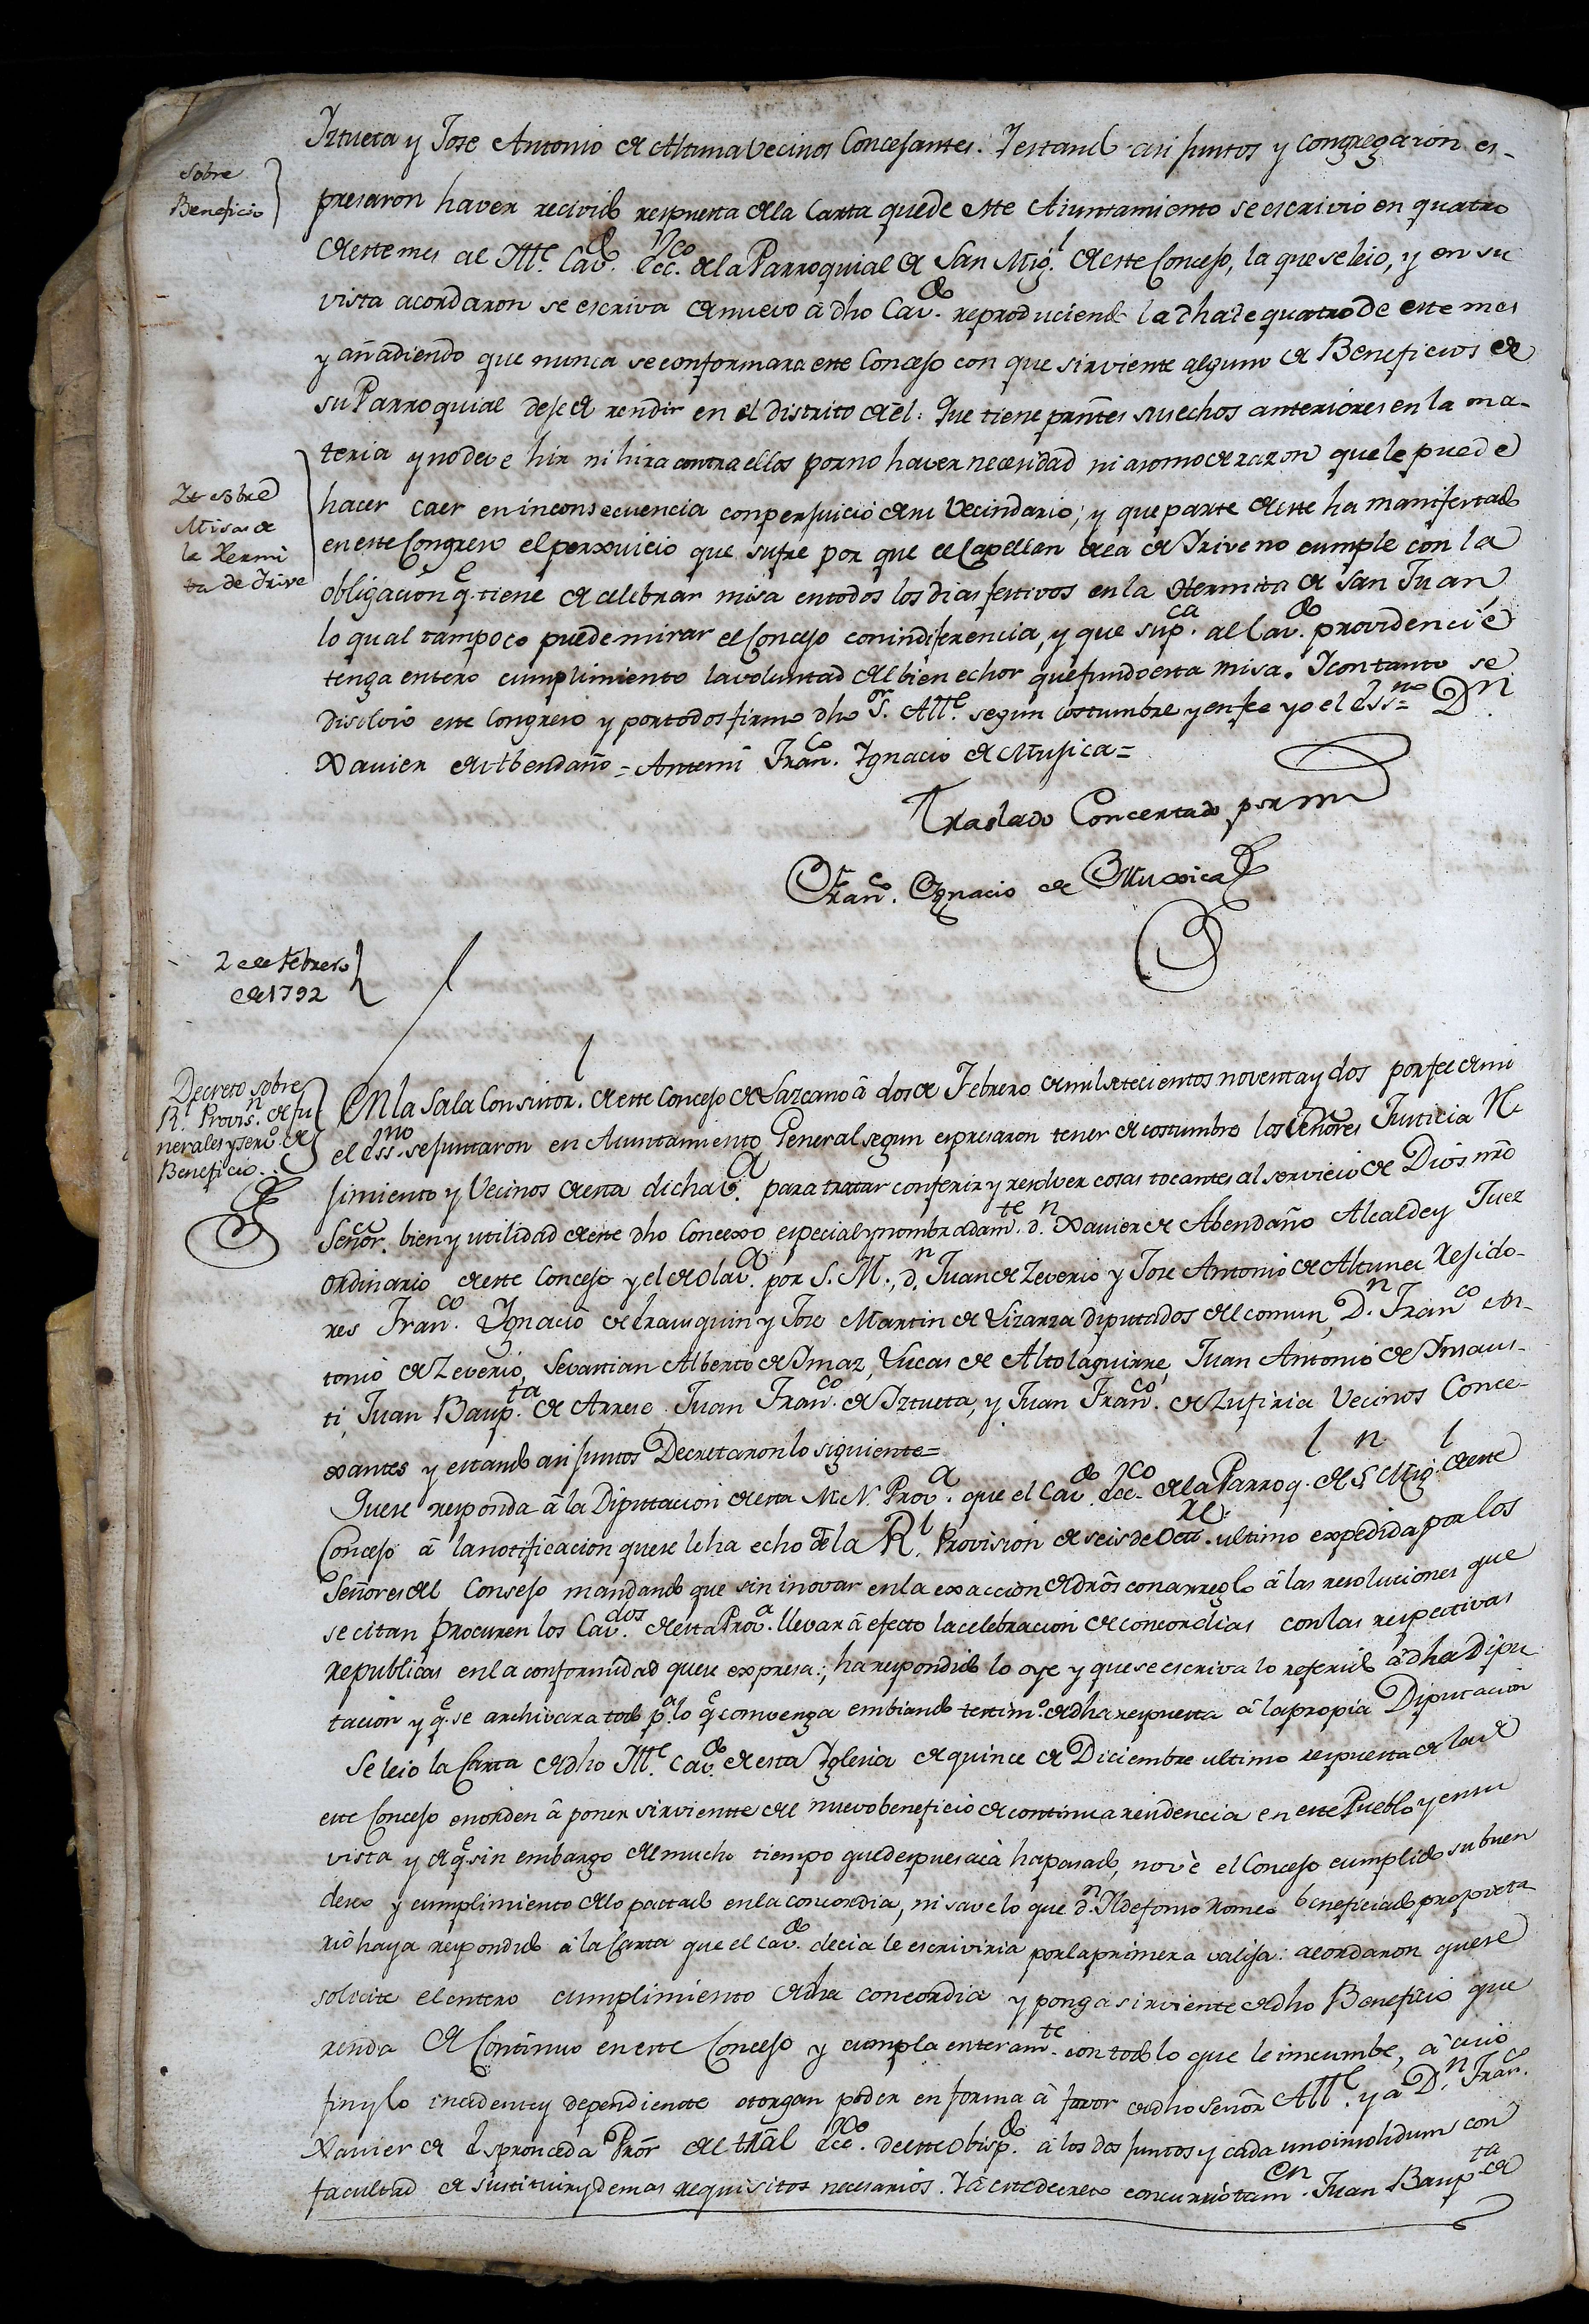 Yztueta y Jose Antonio de Altuna Vecinos Concejantes. Y estando asi juntos y congregaron es-
sobre
Beneficio
presaron haver recivido respuesta de la Carta que de este Aiuntamiento se escrivio en quatro
de este mes al Ille. Cavdo. Ecco. de la Parroquial de San Migl. de este Concejo, la que se leio, y en su
vista acordaron se escriva de nuevo á dho Cavdo. reproduciendo la dha de quatro de este mes
y añadiendo que nunca se conformara este Concejo con que sirviente alguno de Beneficios de
su Parroquial deje de residir en el distrito de él: Que tiene prntes. sus echos anteriores en la ma-
teria y no deve hir ni hira contra ellos por no haver necesidad ni asomo de razon que le puede
Yt. sobre
Misas de
la Hermi
ta de Yrive
hacer caer en inconsecuencia con perjuicio de su Vecindario; y que parte de este ha manifestado
en este Congreso el perxuicio que sufre por que el Capellan de Yrive no cumple con la
obligación qe. tiene de celebrar misa en todos los dias festivos en la Hermita de San Juan,
lo qual tampoco puede mirar el Concejo con indiferencia, y que supca. al Cavdo. providencie
tenga entero cumplimiento la voluntad del bien echor que fundo esta misa. Y con tanto se
disolvio este Congreso y por todos firmo dho Sor. Alle. segun costumbre y en fee yo el Essno = Dn.
Xavier de Abendaño = Antemi Franco. Ygnacio de Mujica =
Traslado Concertado por mi
Franco. Ygnacio de Muxica
2 de Febrero
de 1792
Decreto sobre
Rl. Provisn. de fu
nerales y servo. de
Beneficio.
En la Sala Consistorl. de este Concejo de Lazcano á dos de Febrero de mil setecientos noventa y dos por fee de mi
el Essno. se juntaron en Aiuntamiento General segun espresaron tener de costumbre los Señores Justicia Re
jimiento y Vecinos de esta dicha Va. para tratar conferir y resolver cosas tocantes al servicio de Dios nro
Señor. bien y utilidad de este dho Concexo especial y nombradamte. dn. Xavier de Abendaño Alcalde y Juez
ordinario de este Concejo y el de Olava. por S. M., dn. Juan de Zeverio y Jose Antonio de Altuna Rejido-
res Franco. Ygnacio de Irausquin y Jose Martin de Lizarza diputados del comun, Dn. Franco An-
tonio de Zeverio, Sevastian Alberto de Ymaz, Lucas de Altolaguirre, Juan Antonio de Ynsaus-
ti, Juan Baupta. de Arrese, Juan Franco. de Yztueta, y Juan Franco. de Zufiria Vecinos Conce-
xantes y estando asi juntos Decretaron lo siguiente =
Que se responda á la Diputacion de esta M. N. Prova. que el Cavdo. Ecco. de la Parroql. de Sn Migl. de este
Concejo á la notificacion que se le ha echo de la Rl. Provision de seis de Octre. ultimo expedida por los
Señores del Consejo mandando que sin inovar en la exaccion de dros con arreglo á las resoluciones que
se citan procuren los Cavdos. de esta Prova. llevar á efecto la celebracion de concordias con las respectivas
republicas en la conformidad que se expresa; ha respondido lo oye y que se escriva lo referido á dha Dipu
tacion y qe. se archivara todo pa. lo qe convenga embiando testimo. de dha respuesta á la propia Diputacion
Se leio la Carta de dho Ille. Cavdo. de esta Yglesia de quince de Diciembre ultimo respuesta de la de
este Concejo en orden á poner sirviente del nuevo beneficio de continua residencia en este Pueblo y en su
vista y de qe. sin embargo del mucho tiempo que despues acá ha pasado, no vé el Concejo cumplido su buen
deseo y cumplimiento de lo pactado en la concordia, ni save lo que dn. Yldefonso Romeo beneficiado propieta
rio haya respondido á la Carta que el Cavdo. decia le escriviria por la primera valija: acordaron que se
solicite el entero cumplimiento de dha concordia y ponga sirviente de dho Beneficio que
resida de Continuo en este Concejo y cumpla enteramte. con todo lo que le incumbe, á cuio
fin y lo incidente y dependiente otorgan poder en forma á favor de dho Señor Alle. y á Dn. Franco.
Xavier de Espronceda Pror del tral Ecco. de este Obispdo. á los dos juntos y cada uno insolidum con
facultad de sustituir y demas requisitos necesarios. Y á este decreto concurrió tamen. Juan Baupta de